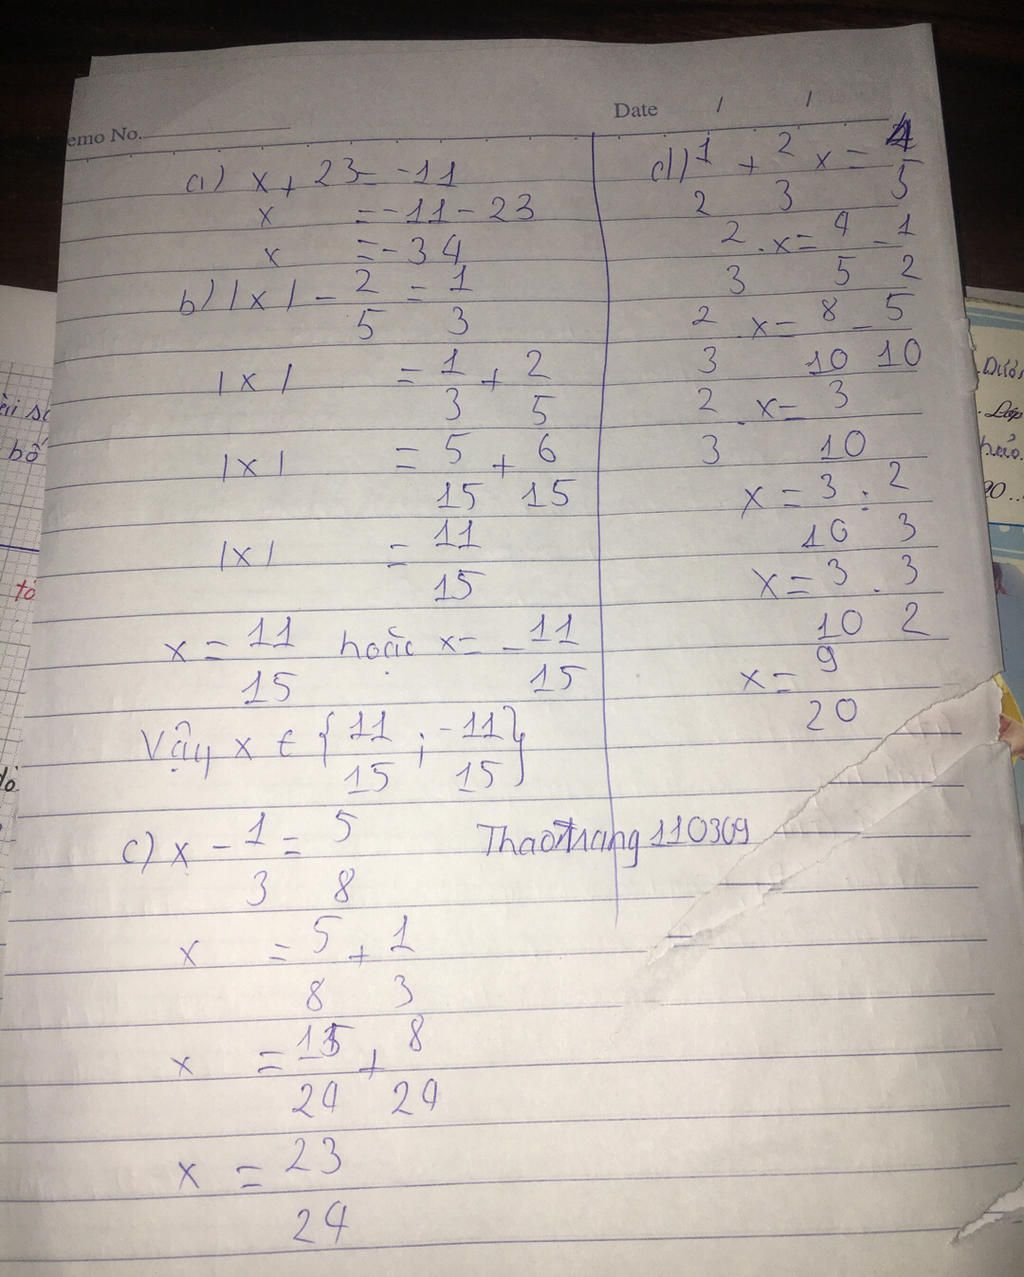 emo No.
Date / /
a) x + 23 = -11
x = -11 - 23
x = -34
b) |x| - 2/5 = 1/3
|x| = 1/3 + 2/5
|x| = 5/15 + 6/15
|x| = 11/15
x = 11/15 hoặc x = - 11/15
Vậy x ∈ {11/15 ; -11/15}
c) x - 1/3 = 5/8
x = 5/8 + 1/3
x = 15/24 + 8/24
x = 23/24
d) 1/2 + 2/3 x = 4/5
2/3 . x = 4/5 - 1/2
2/3 . x = 8/10 - 5/10
2/3 . x = 3/10
x = 3/10 : 2/3
x = 3/10 . 3/2
x = 9/20
ThaoTrang 110309
bố